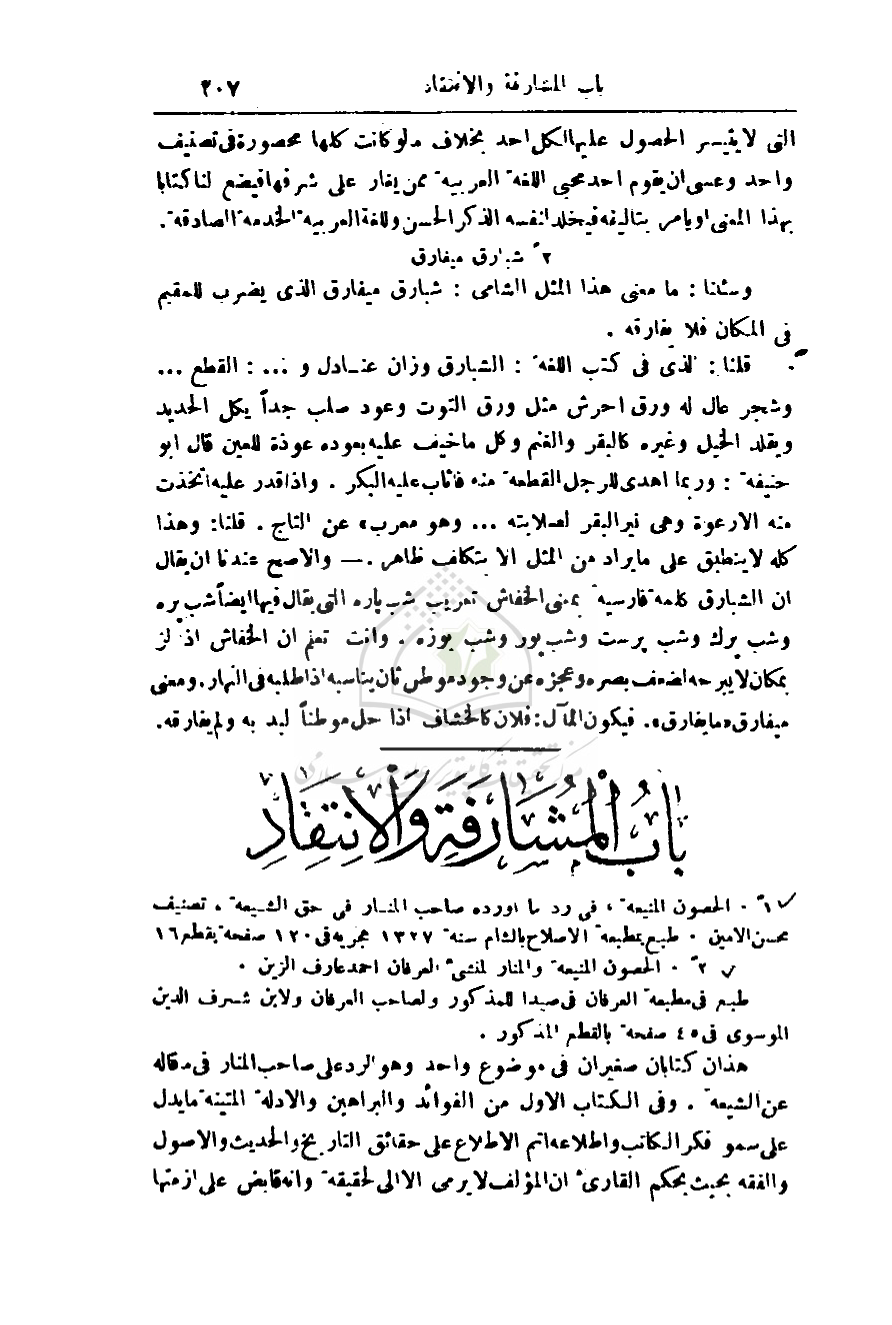 باب المشارفة والانتقاد ٢٠٧
التى لا يتيسر الحصول عليها لكل احد بخلاف ما لو كانت كلها محصورة فى تصنيف
واحد وعسى ان يقوم احد محبي اللغة العربية ممن يغار على شرفها فيضع لنا كتابا
بهذا المعنى او يأمر بتأليفه فيخلد لنفسه الذكر الحسن وللغة العربية الخدمة الصادقة .
٢ً شبارق ميفارق
وسئلنا : ما معنى هذا المثل الشامى : شبارق ميفارق الذى يضرب للمقيم
فى المكان فلا يفارقه .
قلنا : الذى فى كتب اللغة : الشبارق وزان عنادل و ... : القطع ...
وشجر عال له ورق احرش مثل ورق التوت وعود صلب جداً يكل الحديد
ويقلد الخيل وغيره كالبقر والغنم وكل ما خيف عليه بعوده عوذة للعين قال ابو
حنيفة : وربما اهدى للرجل القطعة منه فاثاب عليه البكر . واذا قدر عليه اتخذت
منه الارعوة وهى نير البقر لصلابته ... وهو معرب» عن التاج . قلنا : وهذا
كله لا ينطبق على ما يراد من المثل الا بتكلف ظاهر . — والاصح عندنا ان يقال
ان الشبارق كلمة فارسية بمعنى الخفاش تعريب شب پاره التى يقال فيها ايضاً شب پره
وشب پرك وشب پرست وشب پور وشب پوزه . وانت تعلم ان الخفاش اذا لز
بمكان لا يبرحه لضعف بصره وعجزه عن وجود موطن ثان يناسبه اذا طلبه فى النهار . ومعنى
ميفارق «ما يفارق» . فيكون المآل : فلان كالخشاف اذا حل موطناً لبد به ولم يفارقه .
باب المشارفة والانتقاد
١ً . الحصون المنيعة ، فى رد ما اورده صاحب المنار فى حق الشيعة . تصنيف
محسن الامين . طبع بمطبعة الاصلاح بالشام سنة ١٣٢٧ هجرية فى ١٢٠ صفحة بقطع ١٦
٢ً . الحصون المنيعة والمنار لمنشئ العرفان احمد عارف الزين .
طبع فى مطبعة العرفان فى صيدا للمذكور ولصاحب العرفان ولابن شرف الدين
الموسوى فى ٤٥ صفحة بالقطع المذكور .
هذان كتابان صغيران فى موضوع واحد وهو الرد على صاحب المنار فى مقاله
عن الشيعة . وفى الكتاب الاول من الفوائد والبراهين والادلة المتينة ما يدل
على سمو فكر الكاتب واطلاعه اتم الاطلاع على حقائق التاريخ والحديث والاصول
والفقه بحيث يحكم القارئ ان المؤلف لا يرمى الا الى الحقيقة وانه قابض على ازمتها